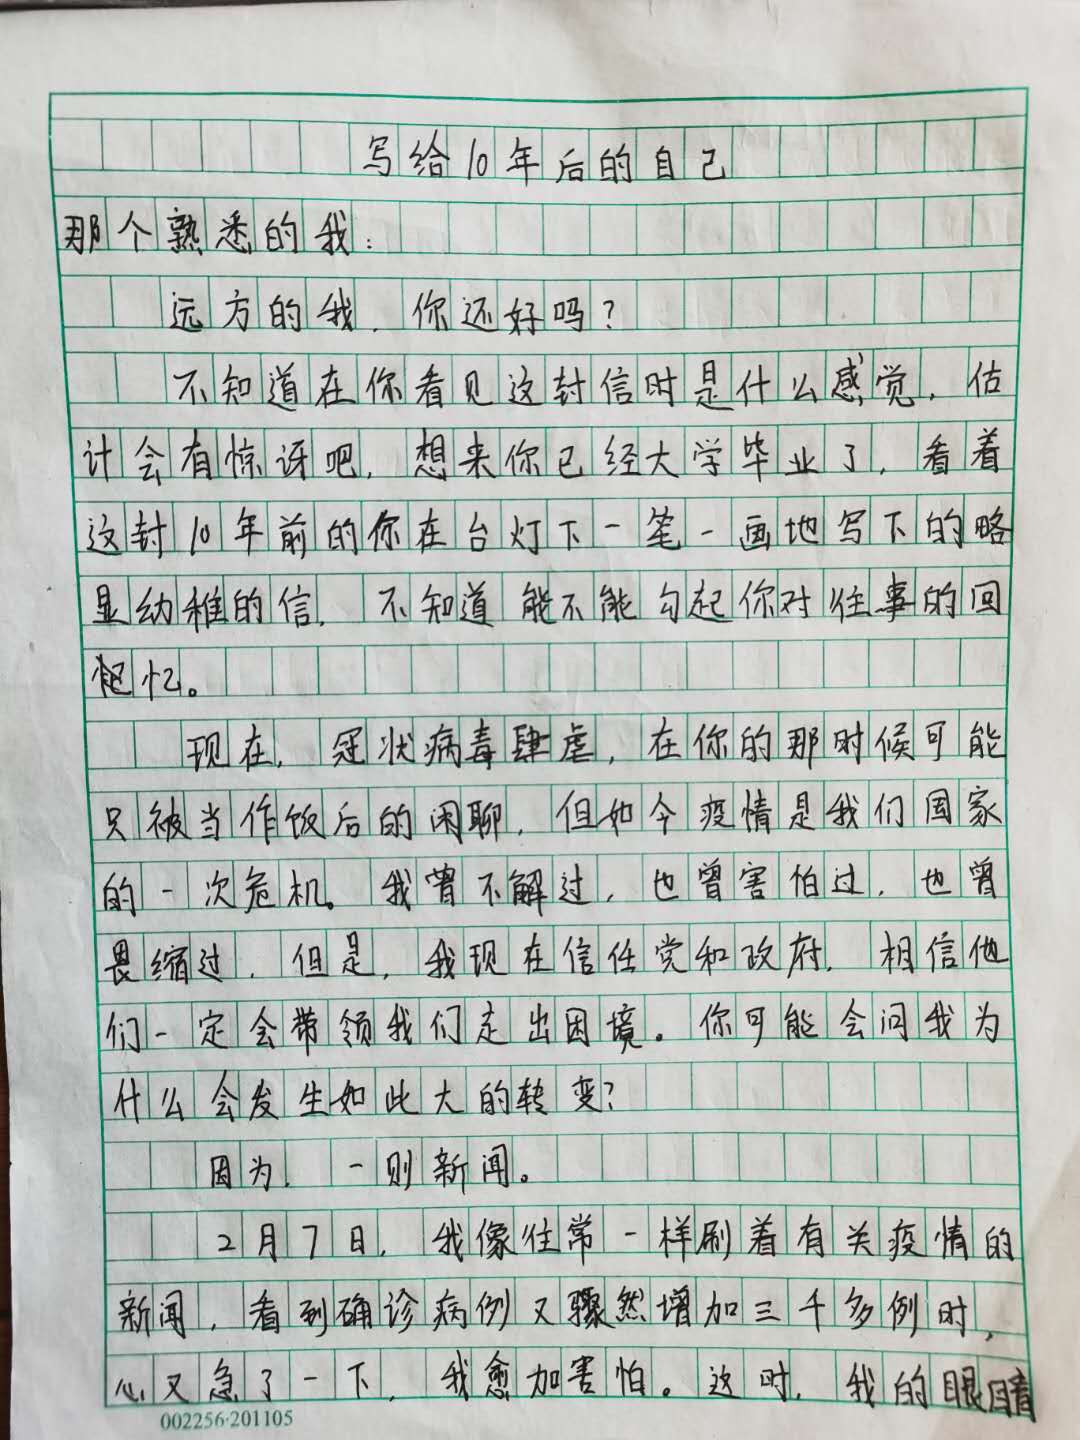 写给10年后的自己
那个熟悉的我:
远方的我,你还好吗?
不知道在你看见这封信时是什么感觉,估
计会有惊讶吧,想来你已经大学毕业了,看着
这封10年前的你在台灯下一笔一画地写下的略
显幼稚的信,不知道能不能勾起你对往事的回
忆。
现在,冠状病毒肆虐,在你的那时候可能
只被当作饭后的闲聊,但如今疫情是我们国家
的一次危机。我曾不解过,也曾害怕过,也曾
畏缩过,但是,我现在信任党和政府,相信他
们一定会带领我们走出困境。你可能会问我为
什么会发生如此大的转变?
因为,一则新闻。
2月7日,我像往常一样刷着有关疫情的
新闻,看到确诊病例又骤然增加三千多例时,
心又急了一下,我愈加害怕。这时,我的眼睛
002256·201105